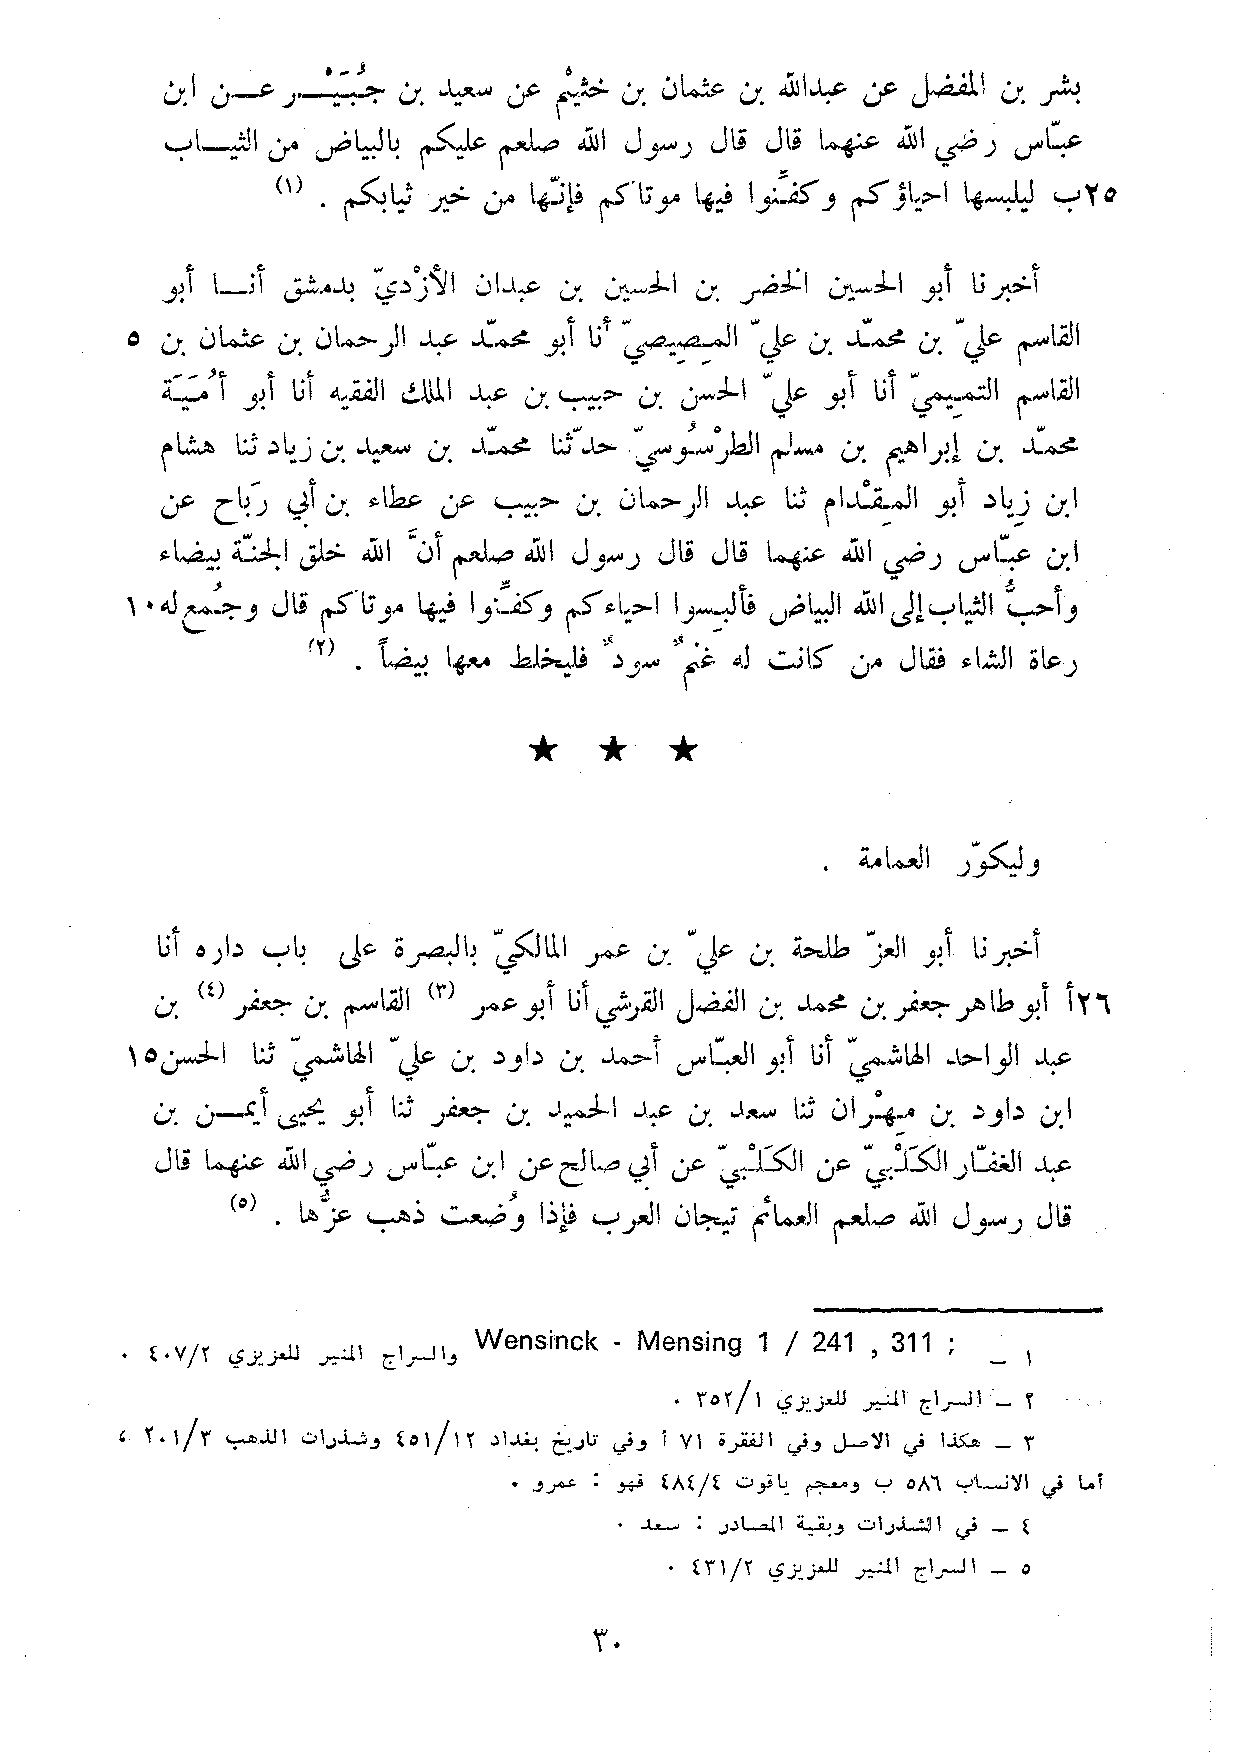 بشر بن المفضل عن عبدالله بن عثمان بن خثيْم عن سعيد بن جُبَيْر عن ابن
عبّاس رضي الله عنهما قال قال رسول الله صلعم عليكم بالبياض من الثياب
٢٥ب ليلبسها احياؤكم وكفّنوا فيها موتاكم فإنّها من خير ثيابكم . (١)
أخبرنا أبو الحسين الخضر بن الحسين بن عبدان الأزْديّ بدمشق أنا أبو
القاسم عليّ بن محمّد بن عليّ المِصِيصيّ أنا أبو محمّد عبد الرحمان بن عثمان بن ٥
القاسم التمِيميّ أنا أبو عليّ الحسن بن حبيب بن عبد الملك الفقيه أنا أبو أُمَيَّة
محمّد بن إبراهيم بن مسلم الطرْسُوسيّ حدّثنا محمّد بن سعيد بن زياد ثنا هشام
ابن زِياد أبو المِقْدام ثنا عبد الرحمان بن حبيب عن عطاء بن أبي رَباح عن
ابن عبّاس رضي الله عنهما قال قال رسول الله صلعم أنّ الله خلق الجنّة بيضاء
وأحبُّ الثياب إلى الله البياض فألبِسوا احياءكم وكفّنوا فيها موتاكم قال وجُمِع له ١٠
رعاة الشاء فقال من كانت له غنمٌ سودٌ فليخلط معها بيضاً . (٢)
★ ★ ★
وليكوّر العمامة .
أخبرنا أبو العزّ طلحة بن عليّ بن عمر المالكيّ بالبصرة على باب داره أنا
٢٦أ أبو طاهر جعفر بن محمد بن الفضل القرشي أنا أبو عمر (٣) القاسم بن جعفر (٤) بن
عبد الواحد الهاشميّ أنا أبو العبّاس أحمد بن داود بن عليّ الهاشميّ ثنا الحسن ١٥
ابن داود بن مِهْران ثنا سعد بن عبد الحميد بن جعفر ثنا أبو يحيى أيمن بن
عبد الغفّار الكَلْبيّ عن الكَلْبيّ عن أبي صالح عن ابن عبّاس رضي الله عنهما قال
قال رسول الله صلعم العمائم تيجان العرب فإذا وُضعت ذهب عزُّها . (٥)
١ _ Wensinck - Mensing 1 / 241 , 311 ; والسراج المنير للعزيزي ٤٠٧/٢ .
٢ _ السراج المنير للعزيزي ٣٥٢/١ .
٣ _ هكذا في الاصل وفي الفقرة ٧١ أ وفي تاريخ بغداد ٤٥١/١٢ وشذرات الذهب ٢٠١/٣ ،
أما في الانساب ٥٨٦ ب ومعجم ياقوت ٤٨٤/٤ فهو : عمرو .
٤ _ في الشذرات وبقية المصادر : سعد .
٥ _ السراج المنير للعزيزي ٤٣١/٢ .
٣٠